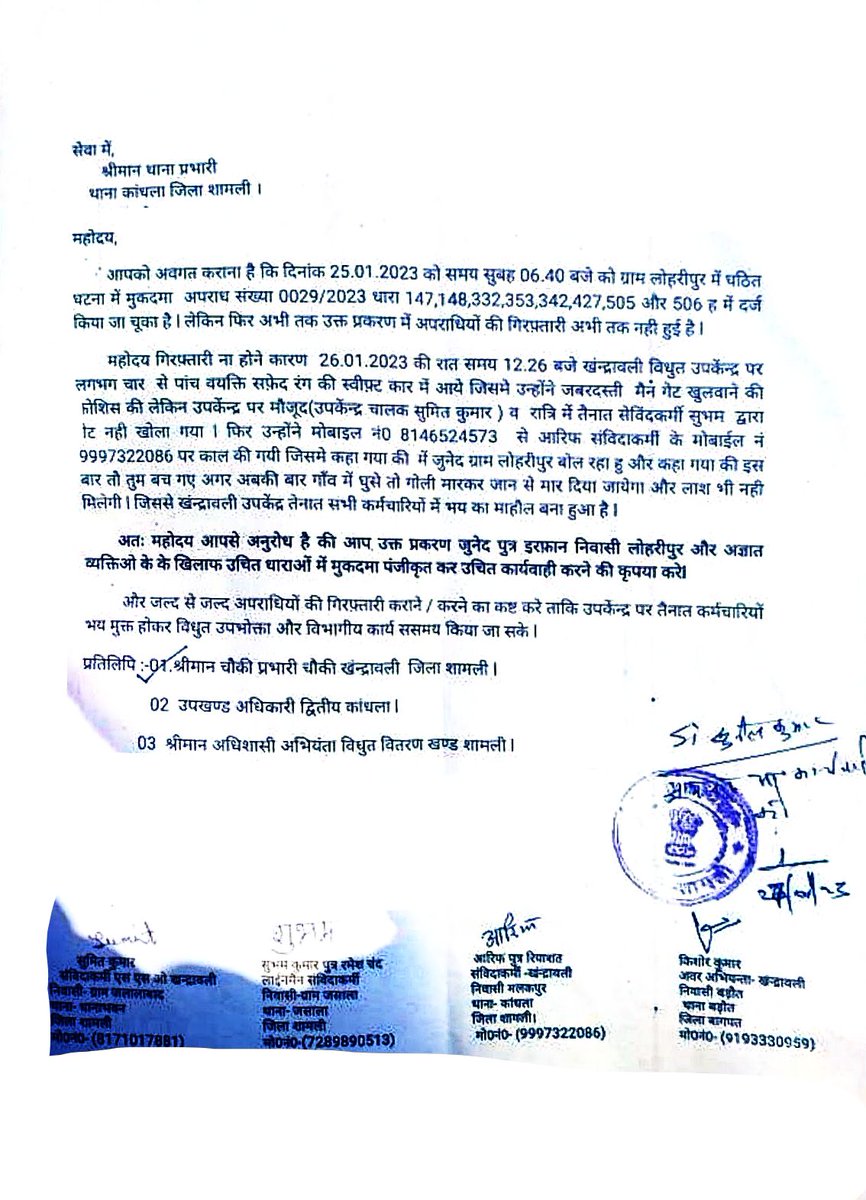 सेवा में,
श्रीमान थाना प्रभारी
थाना कांधला जिला शामली ।
महोदय,
आपको अवगत कराना है कि दिनांक 25.01.2023 को समय सुबह 06.40 बजे को ग्राम लोहरीपुर में घठित
घटना में मुकदमा अपराध संख्या 0029/2023 धारा 147,148,332,353,342,427,505 और 506 ह में दर्ज
किया जा चूका है । लेकिन फिर अभी तक उक्त प्रकरण में अपराधियों की गिरफ़्तारी अभी तक नही हुई है ।
महोदय गिरफ्तारी ना होने कारण 26.01.2023 की रात समय 12.26 बजे खंन्द्रावली विधुत उपकेंन्द्र पर
लगभग चार से पांच वयक्ति सफ़ेद रंग की स्वीफ़्ट कार में आये जिसमे उन्होंने जबरदस्ती मैन गेट खुलवाने की
कोशिस की लेकिन उपकेंन्द्र पर मौजूद(उपकेंन्द्र चालक सुमित कुमार ) व रात्रि में तैनात सेविंदकर्मी सुभम द्वारा
ेट नही खोला गया । फिर उन्होंने मोबाइल नं0 8146524573 से आरिफ संविदाकर्मी के मोबाईल नं
9997322086 पर काल की गयी जिसमे कहा गया की में जुनेद ग्राम लोहरीपुर बोल रहा हु और कहा गया की इस
बार तो तुम बच गए अगर अबकी बार गाँव में घुसे तो गोली मारकर जान से मार दिया जायेगा और लाश भी नही
मिलेगी । जिससे खंन्द्रावली उपकेंद्र तेनात सभी कर्मचारियों में भय का माहौल बना हुआ है ।
अतः महोदय आपसे अनुरोध है की आप उक्त प्रकरण जुनेद पुत्र इरफ़ान निवासी लोहरीपुर और अज्ञात
व्यक्तिओ के के खिलाफ उचित धाराओं में मुकदमा पंजीकृत कर उचित कार्यवाही करने की कृपया करे।
और जल्द से जल्द अपराधियों की गिरफ़्तारी कराने / करने का कष्ट करे ताकि उपकेंन्द्र पर तैनात कर्मचारियों
भय मुक्त होकर विधुत उपभोक्ता और विभागीय कार्य ससमय किया जा सके ।
प्रतिलिपि :-01.श्रीमान चौकी प्रभारी चौकी खंन्द्रावली जिला शामली ।
02 उपखण्ड अधिकारी द्वितीय कांधला ।
03 श्रीमान अधिशासी अभियंता विधुत वितरण खण्ड शामली ।
SI सुनील कुमार
कार्यवाही
करें
शामली
सुभम
आरिफ
सुमित कुमार
संविदाकर्मी एस एस ओ खंन्द्रावली
निवासी- ग्राम जलालाबाद
थाना- थानाभवन
जिला शामली
मो0नं0- (8171017881)
सुभम कुमार पुत्र रमेश चंद
लाईनमैन संविदाकर्मी
निवासी-ग्राम जसाला
थाना- जसाला
जिला शामली
मो0नं0-(7289890513)
आरिफ पुत्र रियाशत
संविदाकर्मी -खंन्द्रावली
निवासी मलकपुर
थाना- कांधला
जिला शामली।
मो0नं0- (9997322086)
किशोर कुमार
अवर अभियन्ता- खंन्द्रावली
निवासी बड़ौत
थाना बड़ौत
जिला बागपत
मो0नं0- (9193330959)